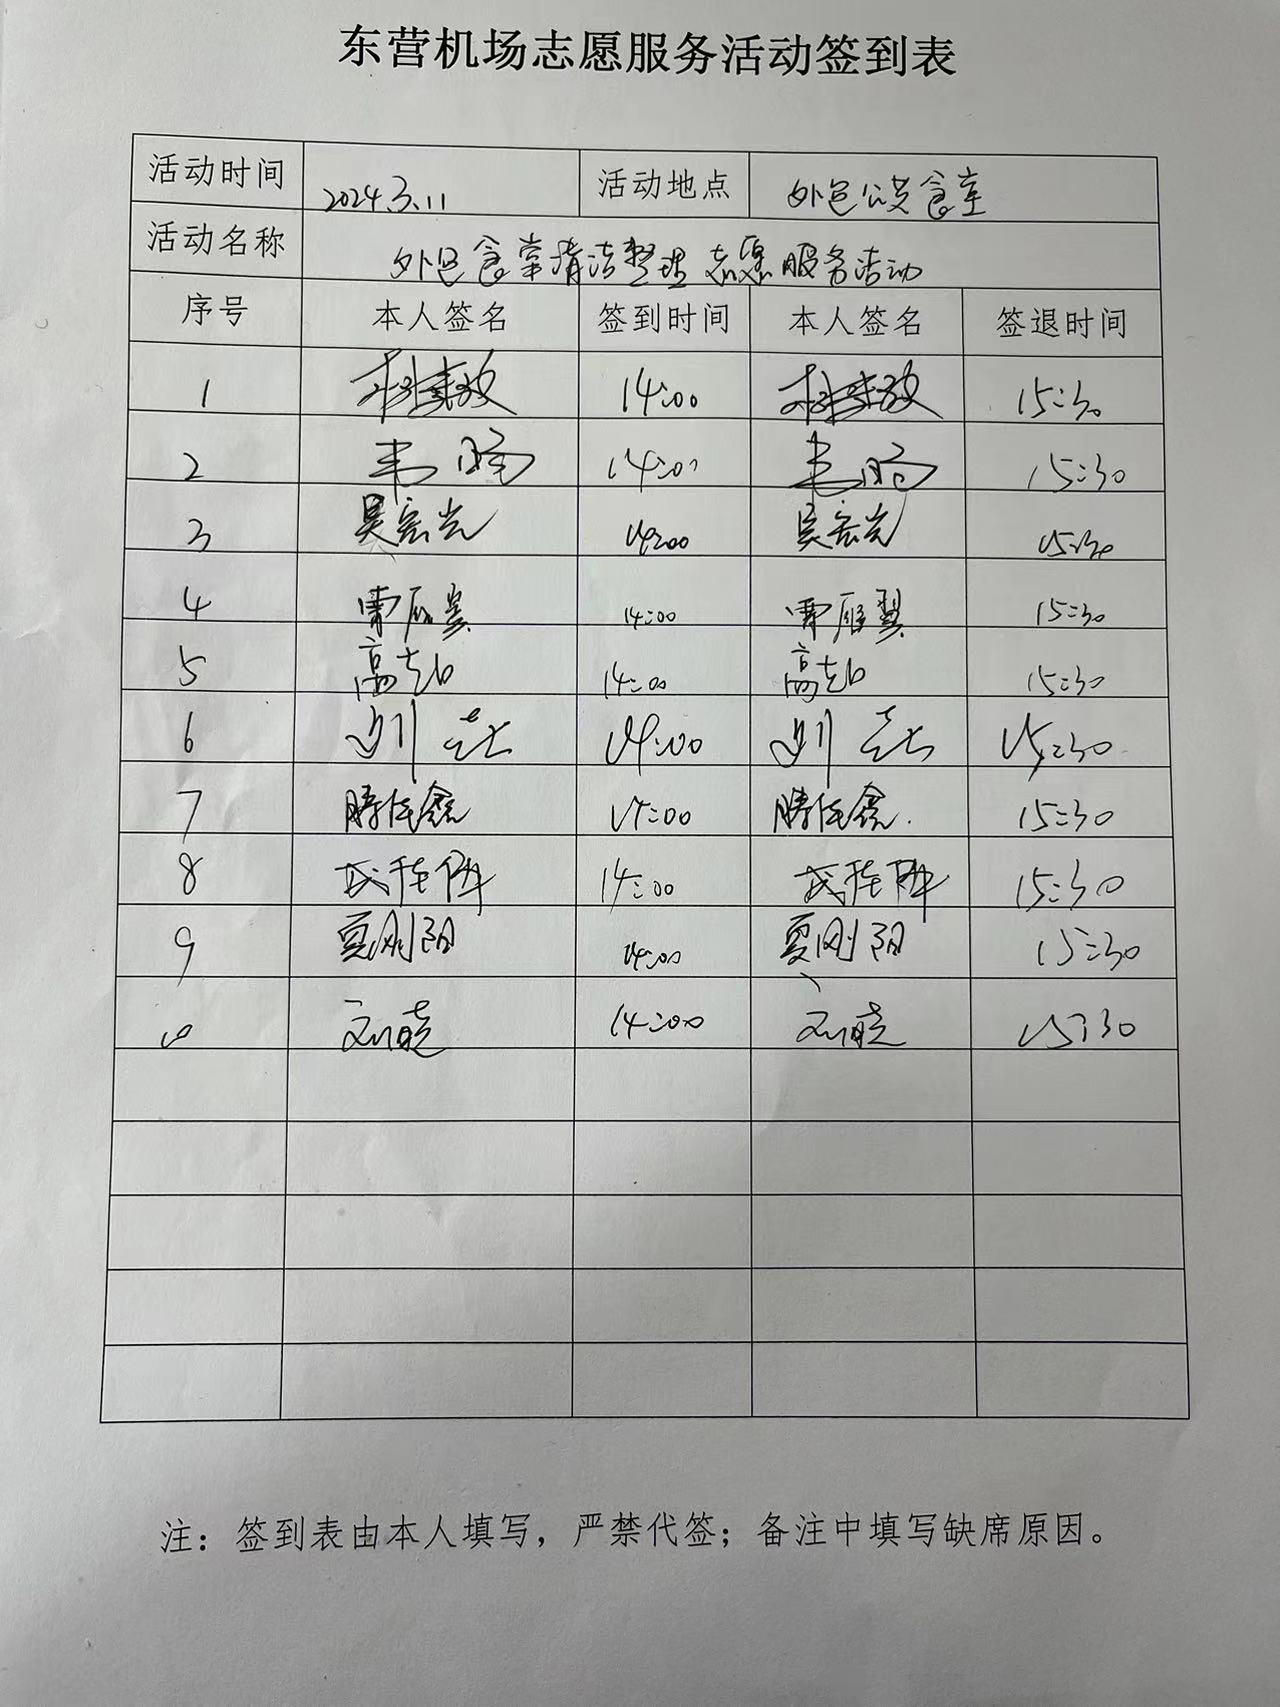 东营机场志愿服务活动签到表
活动时间 2024.3.11 活动地点 外包公共食堂
活动名称 外包食堂清洁整理志愿服务活动
序号 本人签名 签到时间 本人签名 签退时间
1 14:00 15:30
2 韦 14:00 韦 15:30
3 吴宏光 14:00 吴宏光 15:30
4 雷雁翼 14:00 雷雁翼 15:30
5 高 14:00 高 15:30
6 14:00 15:30
7 滕佳鑫 14:00 滕佳鑫 15:30
8 14:00 15:30
9 夏刚阳 14:00 夏刚阳 15:30
10 刘晓 14:00 刘晓 15:30
注：签到表由本人填写，严禁代签；备注中填写缺席原因。